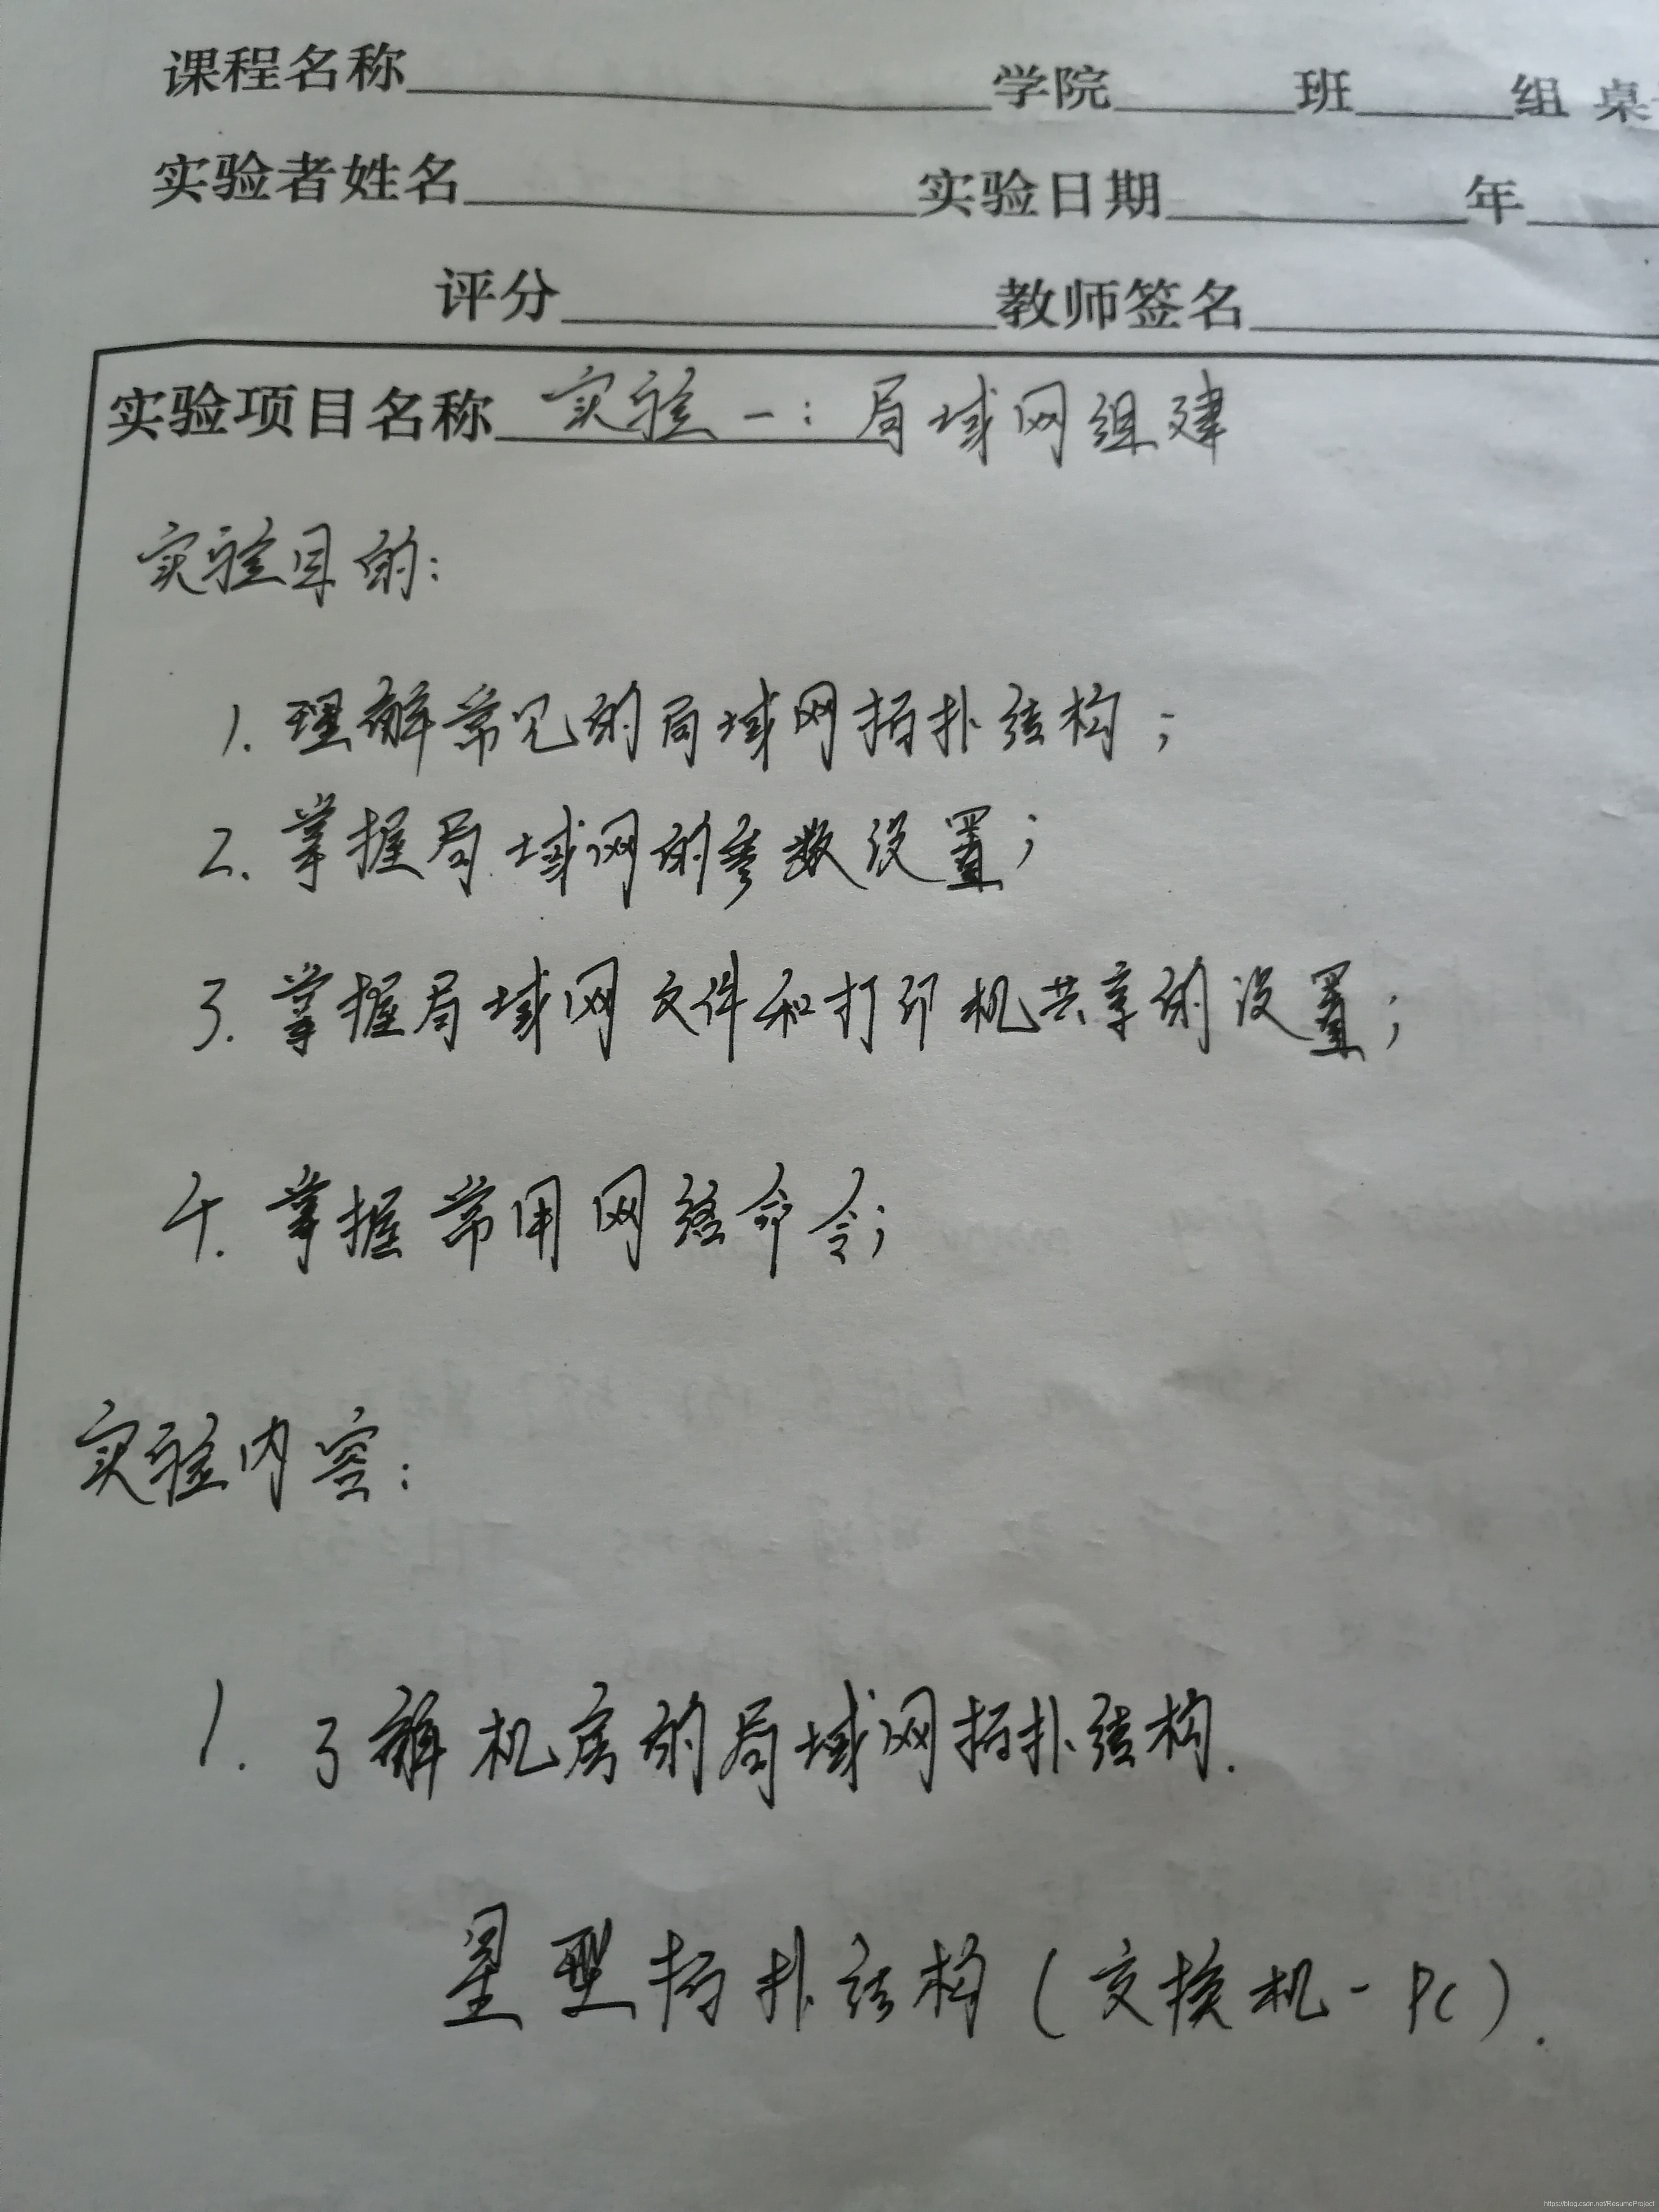 课程名称 学院 班 组 桌
实验者姓名 实验日期 年
评分 教师签名
实验项目名称 实验一：局域网组建
实验目的：
1. 理解常见的局域网拓扑结构；
2. 掌握局域网的参数设置；
3. 掌握局域网文件和打印机共享的设置；
4. 掌握常用网络命令；
实验内容：
1. 了解机房的局域网拓扑结构.
星型拓扑结构(交换机-PC).
https://blog.csdn.net/ResumeProject